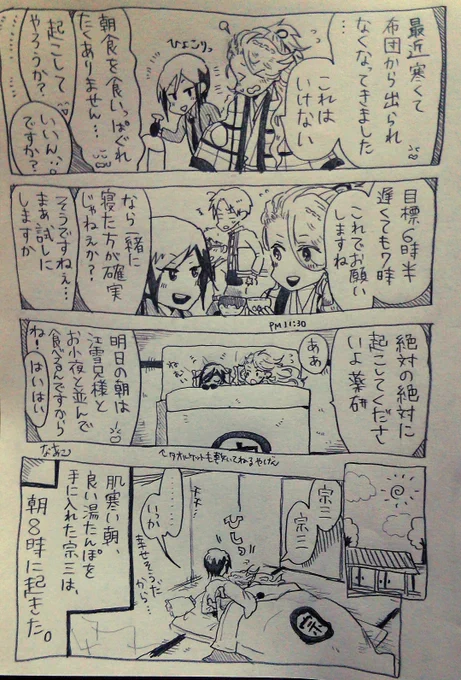 最近寒くて
布団から出られ
なくなってきました
これは
いけない
ひょこりっ
朝食を食いっぱぐれ
たくありません…
起こして
やろうか?
いいん
ですか?
目標6時半
遅くても7時
これでお願い
しますね
なら一緒に
寝た方が確実
じゃねぇか?
そうですねぇ…
まぁ試しに
しますか
PM11:30
絶対の絶対に
起こしてくださ
いよ薬研
ああ
明日の朝は
江雪兄様と
お小夜と並んで
食べるんですから
ね!
はいはい
↑タオルケットも敷いてねるやげん
宗三
宗三
ひしっ
……
いっか
幸せそうだ
から…
肌寒い朝、
良い湯たんぽを
手に入れた宗三は、
朝8時に起きた。